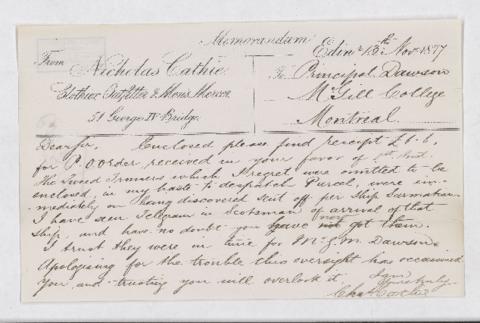 Memorandum
Edinr 13th Nov 1877
From
Nicholas Cathie
Clothier Outfitter & Glove Mercer
51 George IV Bridge.
To Principal Dawson
McGill College
Montreal.
Dear Sir, Enclosed please find receipt £
for P.O. Order received in your favor of Inst.
The Tweed Trousers which I regret were omitted to be
enclosed, in my haste to despatch Parcel, were im-
mediately on being discovered sent off per Ship Sarmatian
I have seen Telegram in Scotsman of arrival of that
Ship, and have no doubt you have now got them.
I trust they were in time for Mr G.M. Dawson.
Apologising for the trouble this oversight has occasioned
you and trusting you will overlook it
I am
Yours truly
Cathie